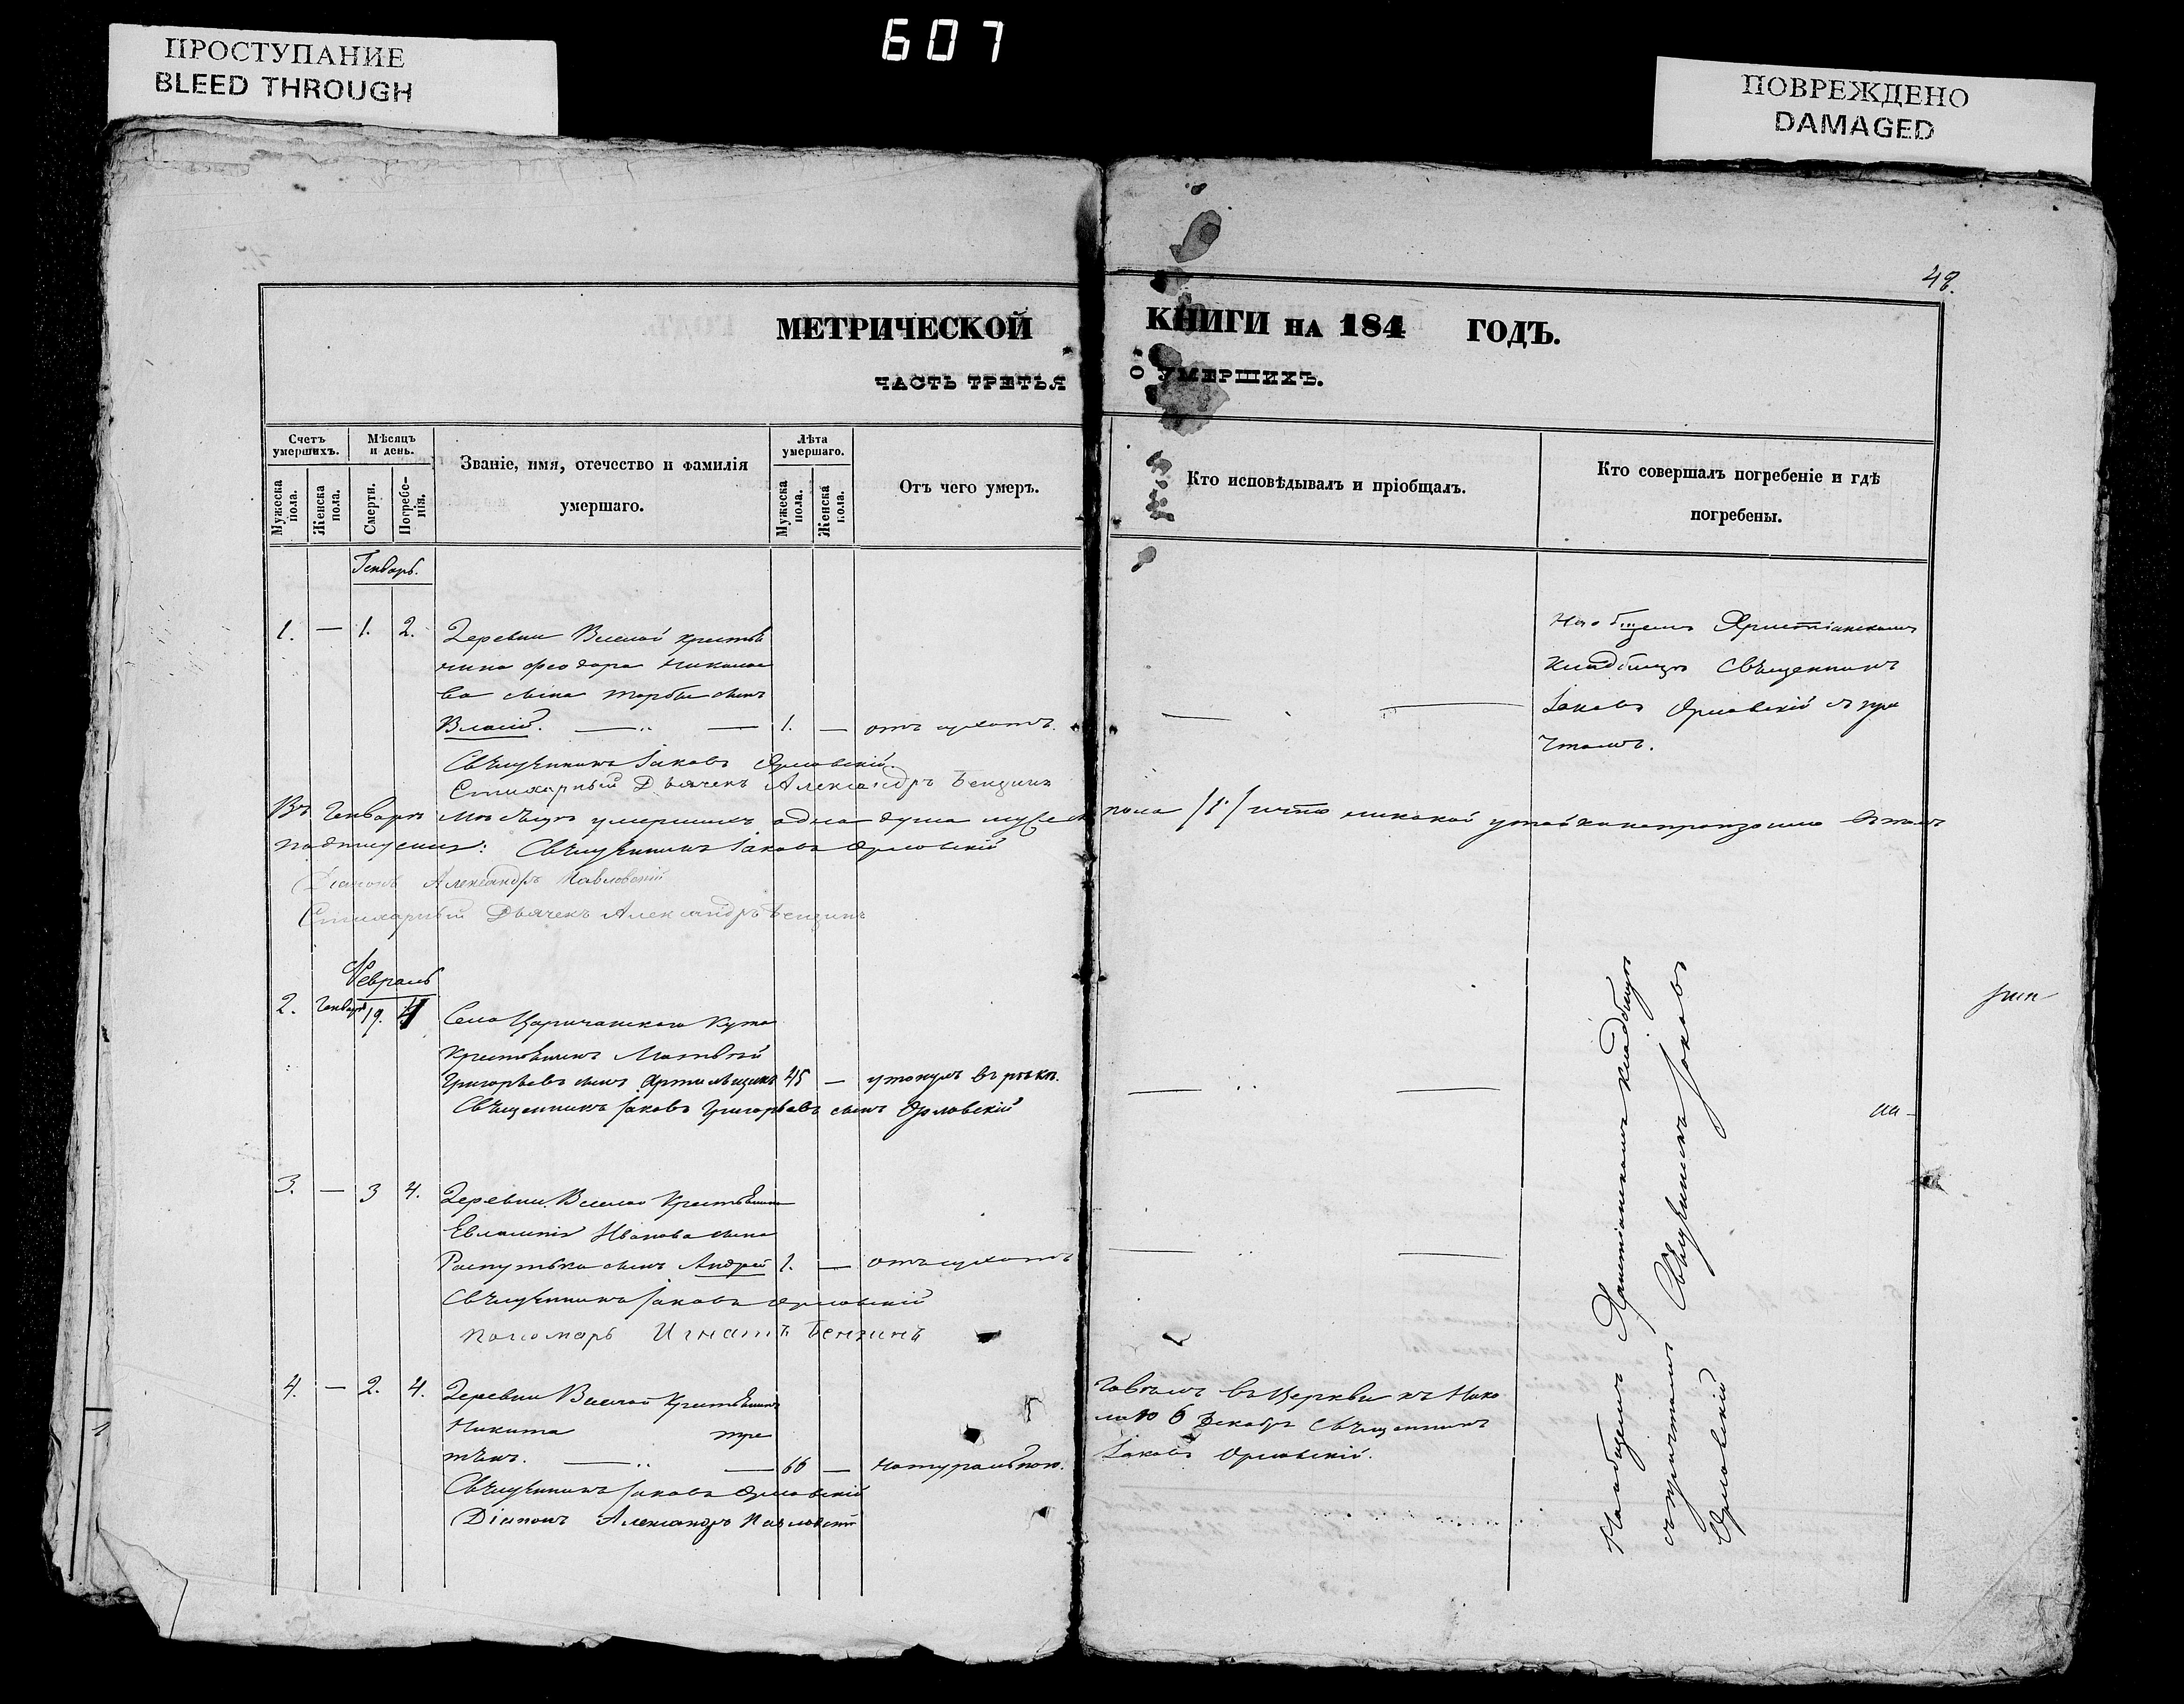 607
ПРОСТУПАНИЕ
BLEED THROUGH
ПОВРЕЖДЕНО
DAMAGED
48.
МЕТРИЧЕСКОЙ КНИГИ НА 184 ГОДЪ.
ЧАСТЬ ТРЕТЬЯ О УМЕРШИХЪ.
Счетъ умершихъ.
Мужеска пола.
Женска пола.
Мѣсяцъ и день.
Смерти.
Погребенія.
Званіе, имя, отечество и фамилія
умершаго.
Лѣта умершаго.
Мужеска пола.
Женска пола.
Отъ чего умеръ.
Кто исповѣдывалъ и пріобщалъ.
Кто совершалъ погребеніе и гдѣ
погребены.
Генварь.
1. — 1. 2. Деревни крестья
нина Феодора Николае
ва сына сынъ
Власій. — 1. — отъ сухотъ.
На общемъ Христіанскомъ
кладбищѣ Священникъ
Іаковъ Орловскій съ при
чтомъ.
Священникъ Іаковъ Орловскій.
Стихарный Дьячекъ Александръ Бензинъ
Въ Генварѣ мѣсяцѣ умершихъ одна душа мужеск пола /1/ и что никакой утайки не произошло въ томъ
подписуемся: Священникъ Іаковъ Орловскій
Діаконъ Александръ Павловскій
Стихарный Дьячекъ Александръ Бензинъ
Февраль
2. Генваря 19. 4 Села Царичанского Кута
Крестьянинъ Матвѣй
Григорьевъ сынъ 45 — утонулъ въ рѣкѣ.
Священникъ Іаковъ Григорьевъ сынъ Орловскій
3. — 3 4. Деревни Крестьянина
Евлампія Иванова сына
сынъ Андрей 1. — отъ сухотъ
Священникъ Іаковъ Орловскій
Пономарь Игнатъ Бензинъ
4. — 2. 4. Деревни Крестьянинъ
Никита
66 — натуральною.
Говѣлъ въ Церкви къ Нико
лаю 6 Декабря Священникъ
Іаковъ Орловскій.
Священникъ Іаковъ Орловскій
Діаконъ Александръ Павловскій
На общемъ Христіанскомъ кладбищѣ
съ причтомъ Священникъ Іаковъ
Орловскій